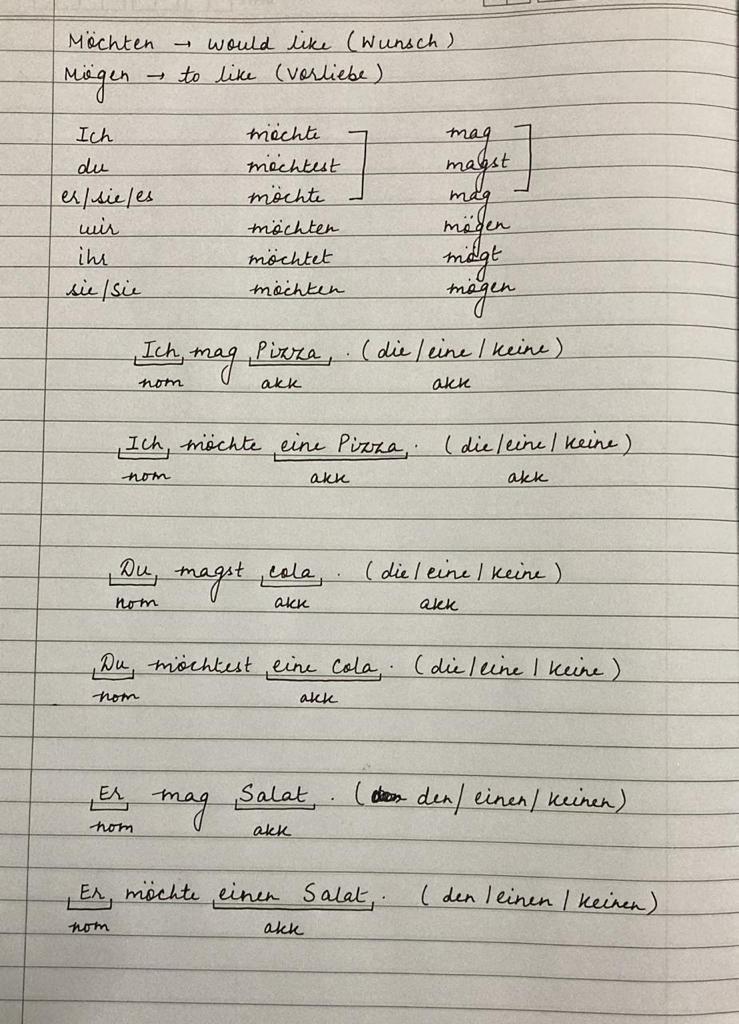 Möchten → would like (Wunsch)
Mögen → to like (Vorliebe)
Ich möchte mag
du möchtest magst
er/sie/es möchte mag
wir möchten mögen
ihr möchtet mögt
sie/Sie möchten mögen
Ich mag Pizza. (die/eine/keine)
nom akk akk
Ich möchte eine Pizza. (die/eine/keine)
nom akk akk
Du magst cola. (die/eine/keine)
nom akk akk
Du möchtest eine Cola. (die/eine/keine)
nom akk
Er mag Salat. (den/einen/keinen)
nom akk
Er möchte einen Salat. (den/einen/keinen)
nom akk